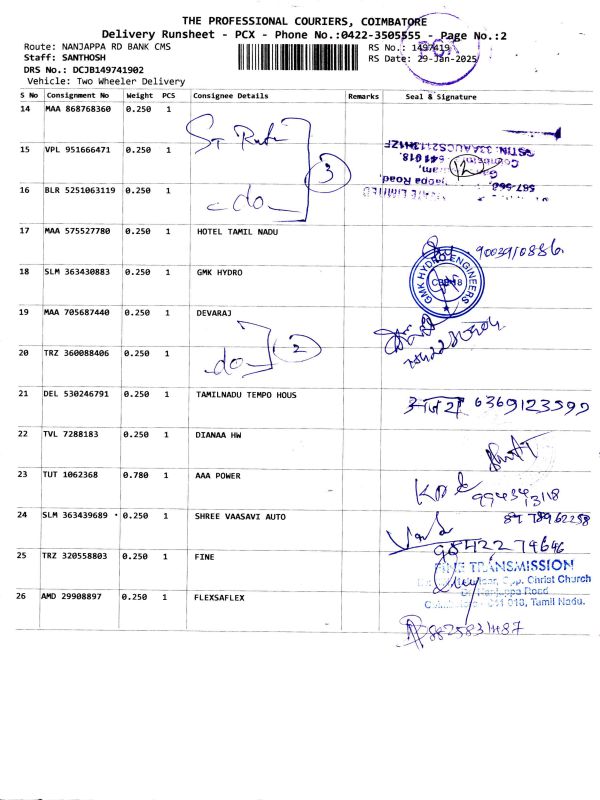 THE PROFESSIONAL COURIERS, COIMBATORE
Delivery Runsheet - PCX - Phone No.:0422-3505555 - Page No.:2
Route: NANJAPPA RD BANK CMS
RS No.: 1497419
Staff: SANTHOSH
RS Date: 29-Jan-2025
DRS No.: DCJB149741902
Vehicle: Two Wheeler Delivery
S No Consignment No Weight PCS Consignee Details Remarks Seal & Signature
14 MAA 868768360 0.250 1
15 VPL 951666471 0.250 1
GSTIN: 33AAUCS2113H1ZF
641 018.
3
12
16 BLR 5251063119 0.250 1 -do-
17 MAA 575527780 1 HOTEL TAMIL NADU
9003910886
18 SLM 363430883 0.250 1 GMK HYDRO
GMK HYDRO ENGINEERS
CBE-18
19 MAA 705687440 0.250 1 DEVARAJ
20 TRZ 360088406 0.250 1 -do- 2
21 DEL 530246791 0.250 1 TAMILNADU TEMPO HOUS
6369123599
22 TVL 7288183 0.250 1 DIANAA HW
23 TUT 1062368 0.780 1 AAA POWER
24 SLM 363439689 0.250 1 SHREE VAASAVI AUTO
8978962258
25 TRZ 320558803 0.250 1 FINE
FINE TRANSMISSION
Opp. Christ Church
Dr. Nanjappa Road
Coimbatore - 641 018, Tamil Nadu.
26 AMD 29908897 0.250 1 FLEXSAFLEX